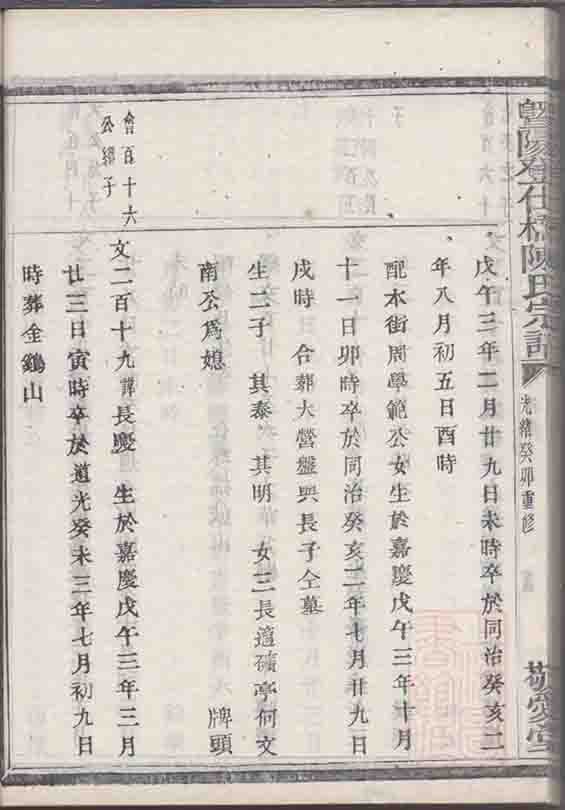 暨陽登仕橋陳氏宗譜
光緒癸卯重修
敬愛堂
戊午三年二月廿九日未時卒於同治癸亥二
年八月初五日酉時
配本街周學範公女生於嘉慶戊午三年十月
十一日卯時卒於同治癸亥二年七月廿九日
戌時 合葬大營盤與長子仝墓
生二子 其泰 其明 女三長適礩亭何文
南公爲媳 牌頭
會百十六
公繼子
文二百十九諱長慶 生於嘉慶戊午三年三月
廿三日寅時卒於道光癸未三年七月初九日
時葬金鷄山